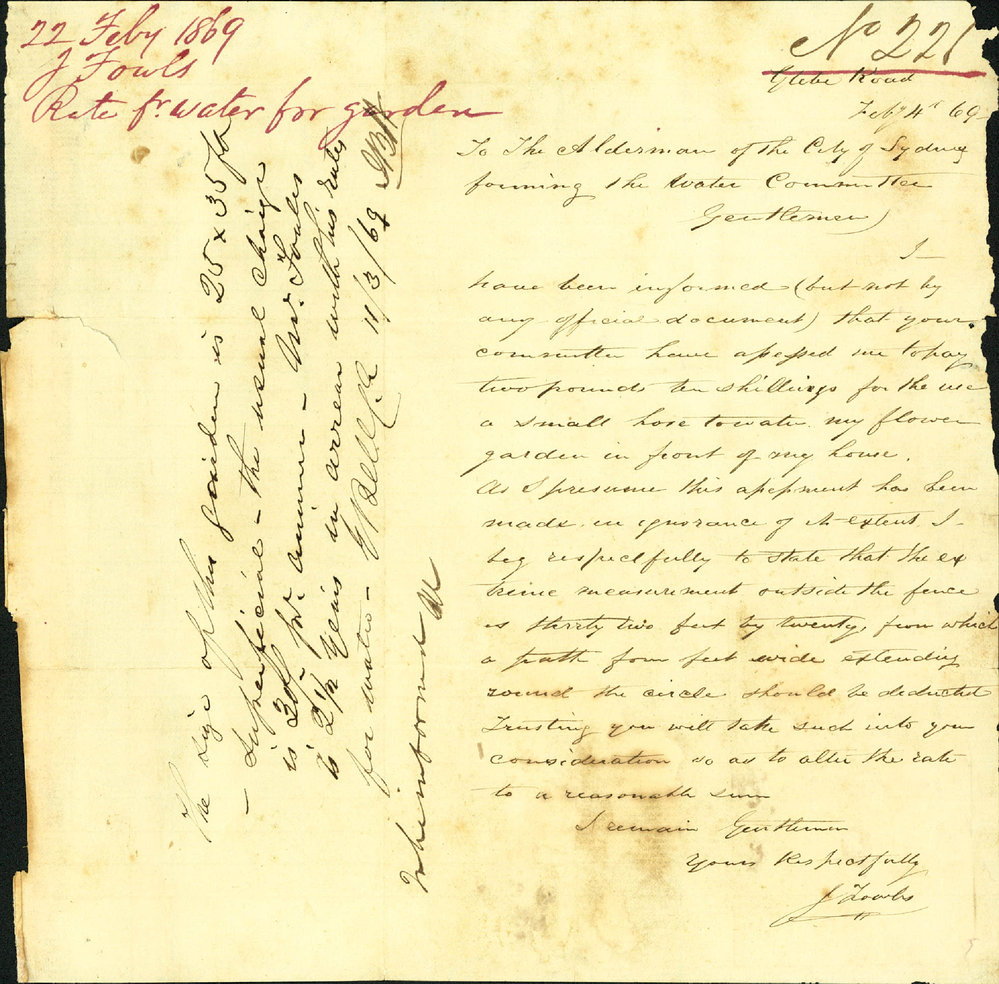 22 Feby 1869
J Fowls
Rate fr. water for garden
No 221
Glebe Road
Feby 4th 69
To The Alderman of the City of Sydney
forming the Water Committee
Gentlemen
I
have been informed (but not by
any official document) that your
committee have assessed me to pay
two pounds ten shillings for the use
a small hose to water my flower
garden in front of my house.
As I presume this assessment has been
made in ignorance of its extent I
beg respectfully to state that the ex
treme measurement outside the fence
is thirty two feet by twenty, from which
a path four feet wide extending
round the circle should be deducted
Trusting you will take such into your
consideration so as to alter the rate
to a reasonable sum
I remain Gentlemen
Yours Respectfully
J Fowles
The size of this garden is 25 x 35 ft
- superficial - the usual charge
is 30/- pr. annum - Mr. Fowles
is 2 1/2 years in arrear with his rates
for water - Bell C.E. 11/3/69
To be informed